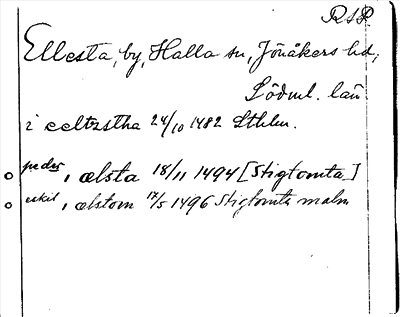 RSP.
Ellesta, by, Halla sn, Jönåkers hd,
Södml. län.
i eeltzstha 24/10 1482 Sthlm.
pedhr, ælsta 18/11 1494 [Stigtomta]
eskil, ælstom 17/5 1496 Stigtomta malm